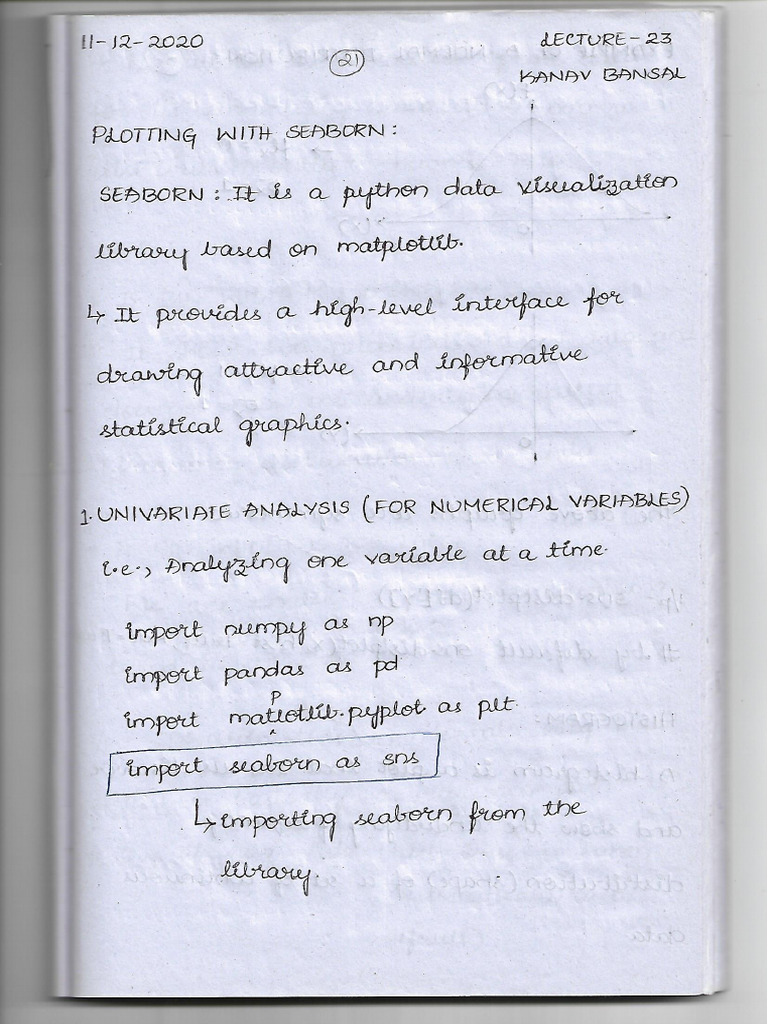 11-12-2020
LECTURE-23
21
KANAV BANSAL
PLOTTING WITH SEABORN:
SEABORN: It is a python data visualization
library based on matplotlib.
↳ It provides a high-level interface for
drawing attractive and informative
statistical graphics.
1. UNIVARIATE ANALYSIS (FOR NUMERICAL VARIABLES)
i.e., Analyzing one variable at a time.
import numpy as np
import pandas as pd
import matplotlib.pyplot as plt
import seaborn as sns
↳ importing seaborn from the
library.